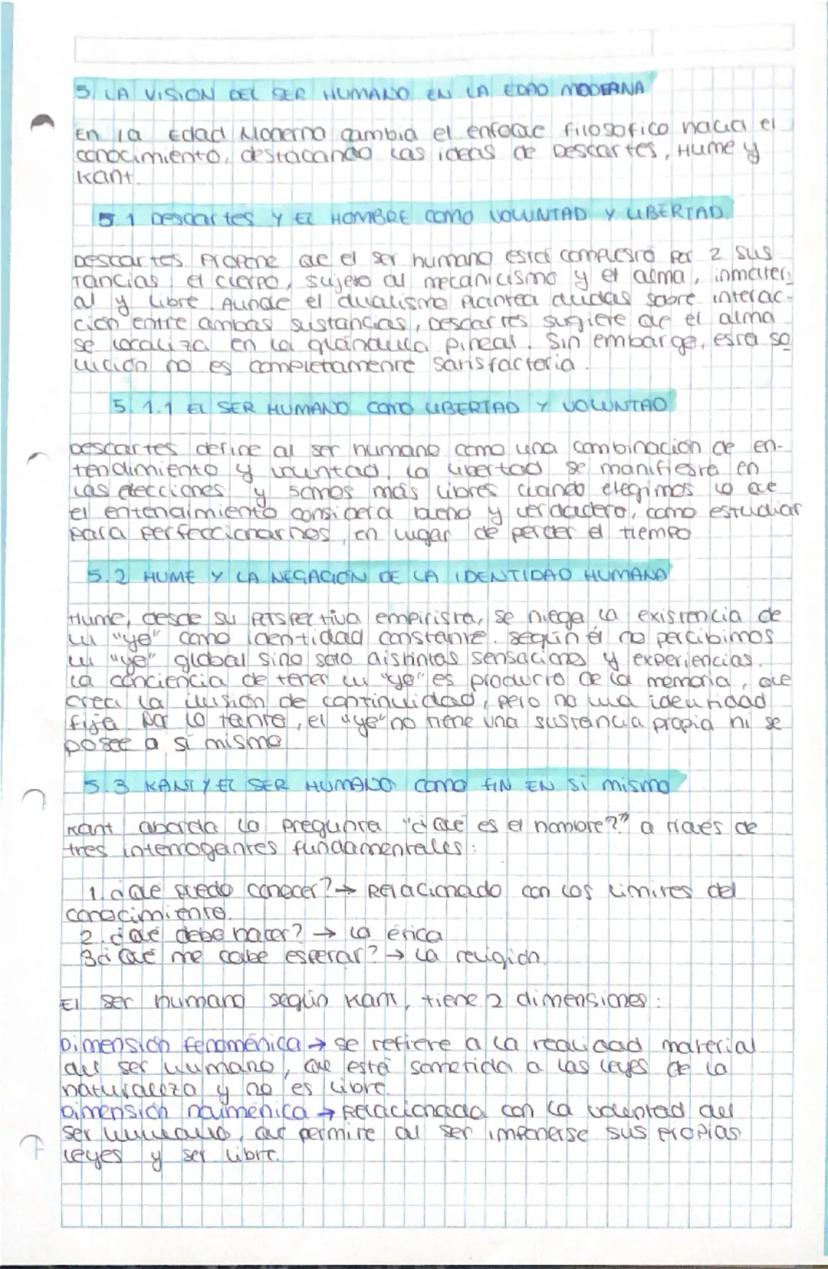 5. LA VISION DEL SER HUMANO EN LA EDAD MODERNA
En la Edad Moderna cambia el enfoque filosofico hacia el
conocimiento, destacando las ideas de Descartes, Hume y
Kant.
5.1 Descartes Y EL HOMBRE COMO VOLUNTAD Y LIBERTAD
Descartes propone que el ser humano está compuesto por 2 sus
tancias el cuerpo, sujeto al mecanicismo y el alma, inmateri
al y libre. Aunque el dualismo plantea dudas sobre interac-
ción entre ambas sustancias, Descartes sugiere que el alma
se localiza en la glándula pineal. Sin embargo, esta so
lución no es completamente satisfactoria.
5.1.1 EL SER HUMANO COMO LIBERTAD Y VOLUNTAD
Descartes define al ser humano como una combinación de en-
tendimiento y voluntad. La libertad se manifiesta en
las elecciones y somos más libres cuando elegimos lo que
el entendimiento considera bueno y verdadero, como estudiar
para perfeccionarnos, en lugar de perder el tiempo
5.2 HUME Y LA NEGACION DE LA IDENTIDAD HUMANA
Hume, desde su perspectiva empirista, se niega la existencia de
un "yo" como identidad constante. Según él no percibimos
un "yo" global sino solo distintas sensaciones y experiencias.
La conciencia de tener un "yo" es producto de la memoria, que
crea la ilusión de continuidad, pero no una identidad
fija. Por lo tanto, el "yo" no tiene una sustancia propia ni se
posee a sí mismo
5.3 KANT Y EL SER HUMANO COMO FIN EN SÍ MISMO
Kant aborda la pregunta "¿Qué es el hombre?" a través de
tres interrogantes fundamentales:
1. ¿Qué puedo conocer? → Relacionado con los límites del
conocimiento.
2. ¿Qué debo hacer? → La ética
3 ¿Qué me cabe esperar? → La religión.
El ser humano según Kant, tiene 2 dimensiones:
Dimensión fenoménica → se refiere a la realidad material
del ser humano, que está sometida a las leyes de la
naturaleza y no es libre.
Dimensión nouménica → Relacionada con la voluntad del
ser humano, que permite al ser imponerse sus propias
leyes y ser libre.